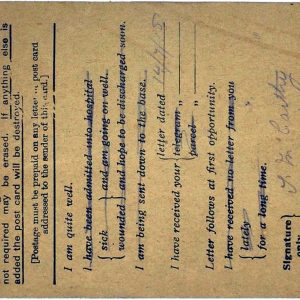 not required may be erased. If anything else is
added the post card will be destroyed.
[Postage must be prepaid on any letter or post card
addressed to the sender of this card.]
I am quite well.
I have been admitted into hospital
{ sick } and am going on well.
{ wounded } and hope to be discharged soon.
I am being sent down to the base.
I have received your { letter dated 14/7/15
telegram "
parcel "
Letter follows at first opportunity.
I have received no letter from you
{ lately
{ for a long time.
Signature }
only